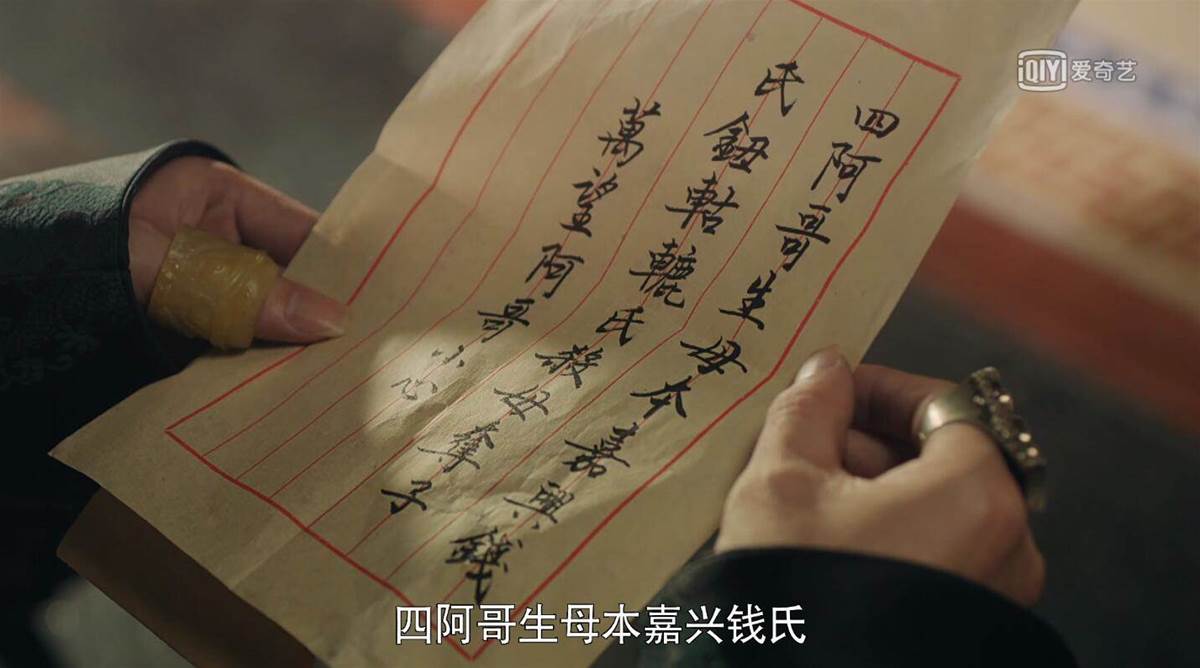 iQIYI 爱奇艺
四阿哥生母本嘉興錢
氏鈕軲轆氏殺母奪子
萬望阿哥小心
四阿哥生母本嘉兴钱氏